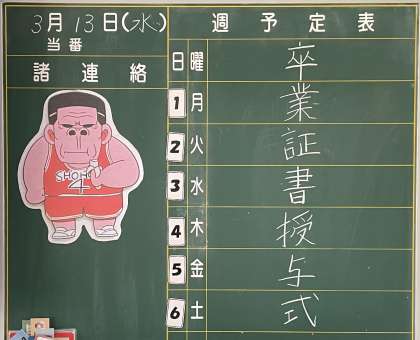 3月13日(水)
当番
諸連絡
SHOHOKU
4
週予定表
日曜
1月
2火
3水
4木
5金
6土
卒業証書授与式